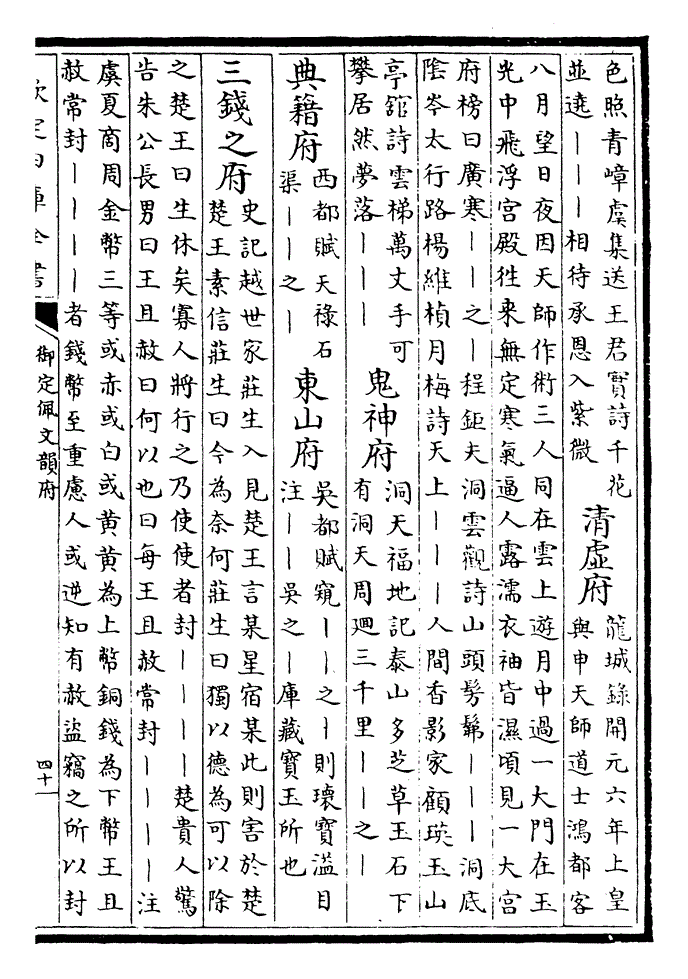 色照青嶂虞集送王君實詩千花
並遶｜｜｜相待承恩入紫微
清虛府
龍城錄開元六年上皇
與申天師道士鴻都客
八月望日夜因天師作術三人同在雲上遊月中過一大門在玉
光中飛浮宮殿徃來無定寒氣逼人露濡衣袖皆濕頃見一大宮
府榜曰廣寒｜｜之｜程鉅夫洞雲觀詩山頭髣髴｜｜｜洞底
陰岑太行路楊維楨月梅詩天上｜｜｜人間香影家顧瑛玉山
亭舘詩雲梯萬丈手可
攀居然夢落｜｜｜
鬼神府
洞天福地記泰山多芝草玉石下
有洞天周廻三千里｜｜之｜
典籍府
西都賦天祿石
渠｜｜之｜
東山府
吳都賦窺｜｜之｜則瓌寶溢目
注｜｜吳之｜庫藏寶玉所也
三錢之府
史記越世家莊生入見楚王言某星宿某此則害於楚
楚王素信莊生曰今為奈何莊生曰獨以德為可以除
之楚王曰生休矣寡人將行之乃使使者封｜｜｜｜楚貴人驚
告朱公長男曰王且赦曰何以也曰每王且赦常封｜｜｜｜注
虞夏商周金幣三等或赤或白或黄黄為上幣銅錢為下幣王且
赦常封｜｜｜｜者錢幣至重慮人或逆知有赦盜竊之所以封
欽定四庫全書
御定佩文韻府
四十一